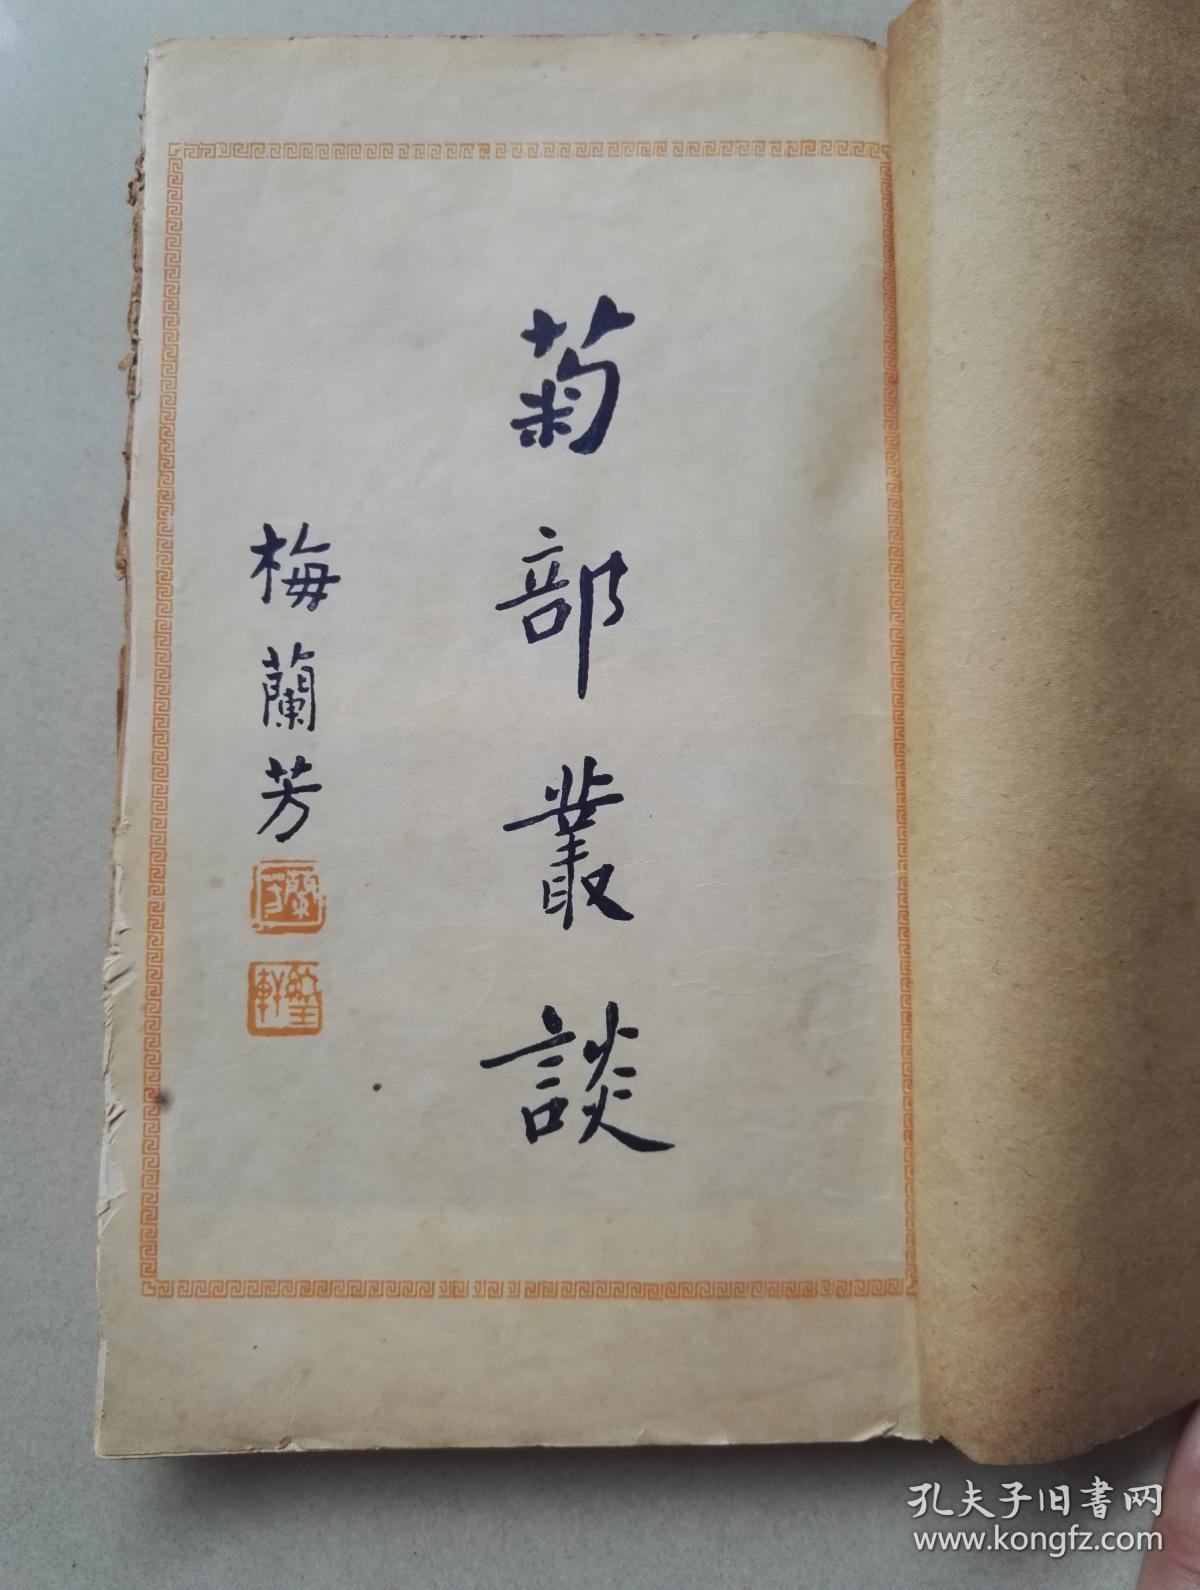 菊部叢談
梅蘭芳
蘭芳
孔夫子旧书网
www.kongfz.com